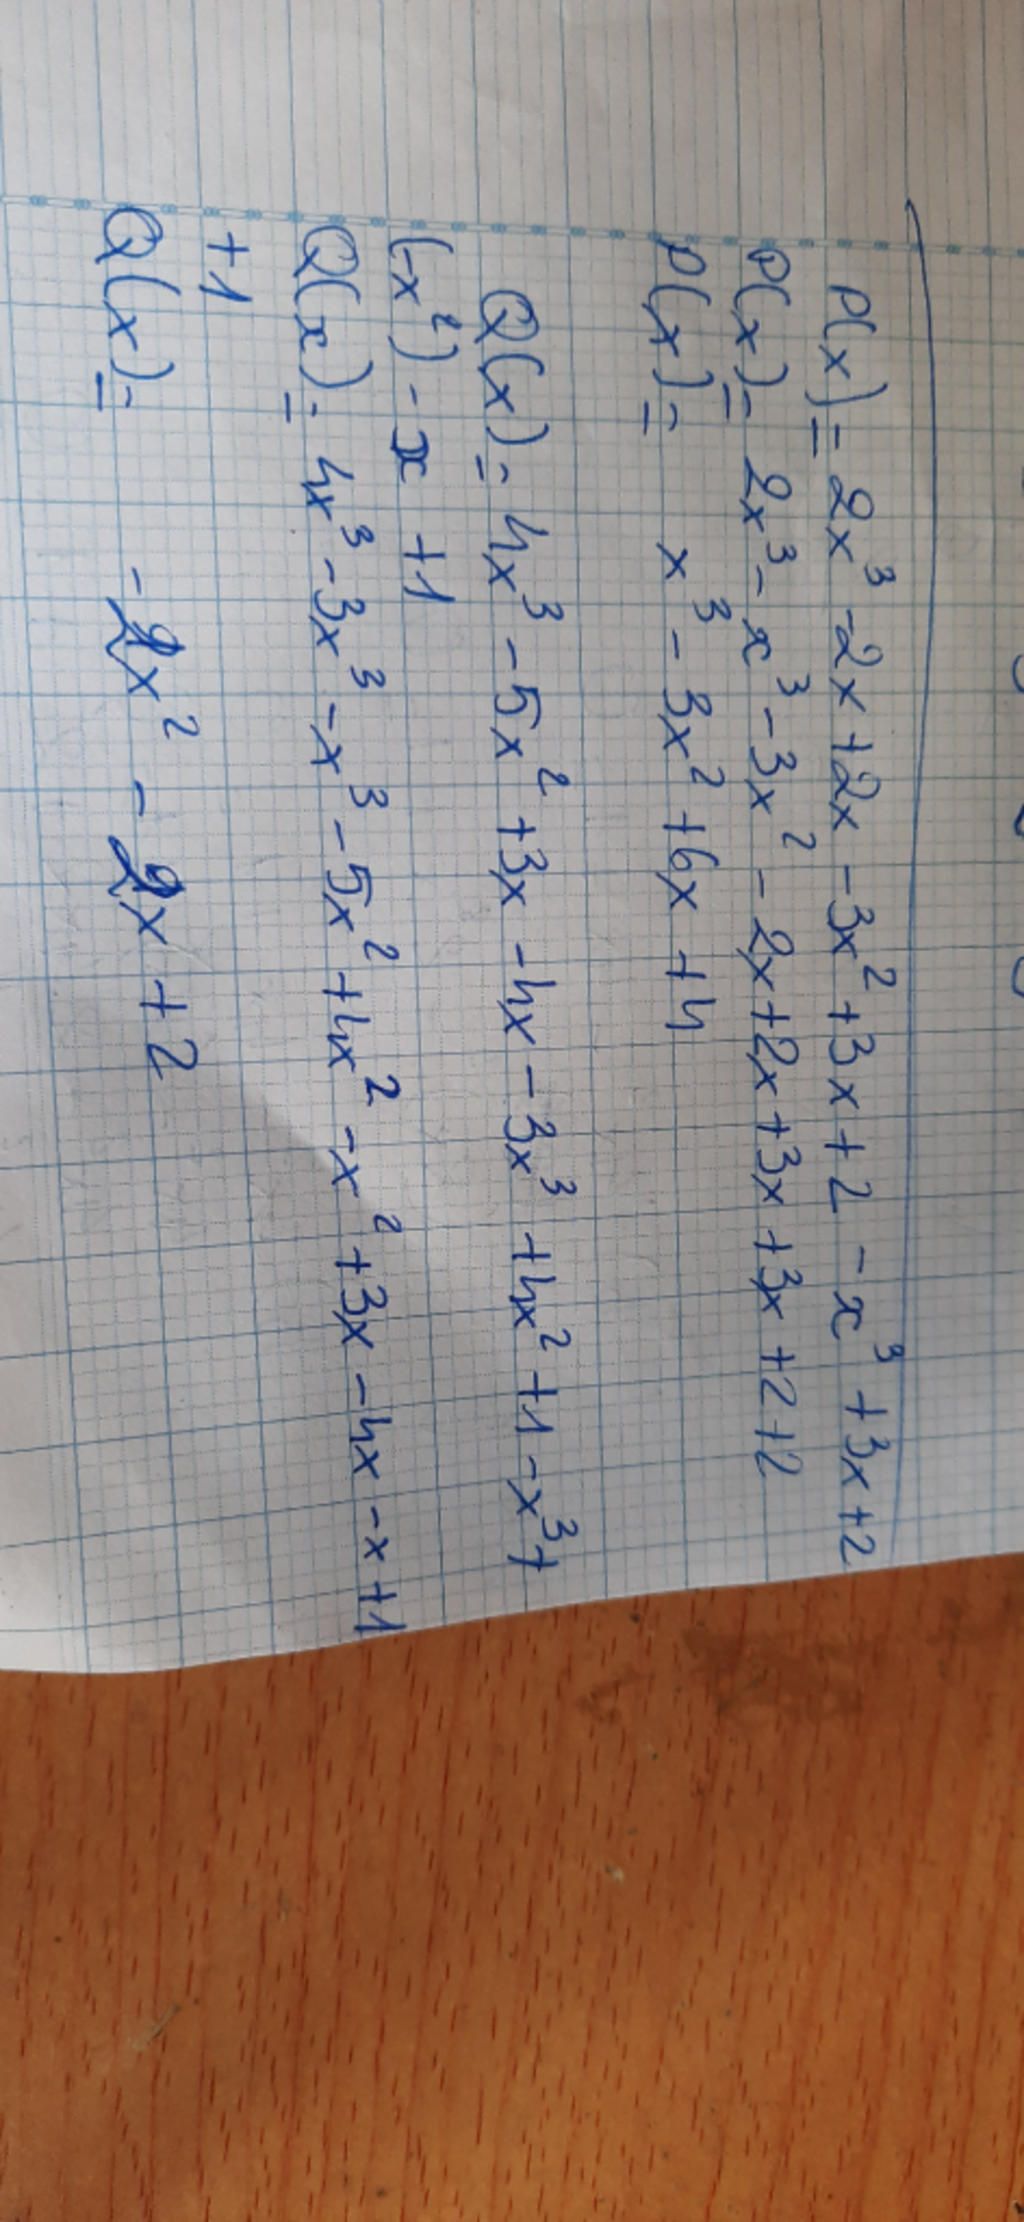 P(x) = 2x³ - 2x + 2x - 3x² + 3x + 2 - x³ + 3x + 2
P(x) = 2x³ - x³ - 3x² - 2x + 2x + 3x + 3x + 2 + 2
P(x) = x³ - 3x² + 6x + 4
Q(x) = 4x³ - 5x² + 3x - 4x - 3x³ + 4x² + 1 - x³ +
(-x²) - x + 1
Q(x) = 4x³ - 3x³ - x³ - 5x² + 4x² - x² + 3x - 4x - x + 1
+ 1
Q(x) = - 2x² - 2x + 2